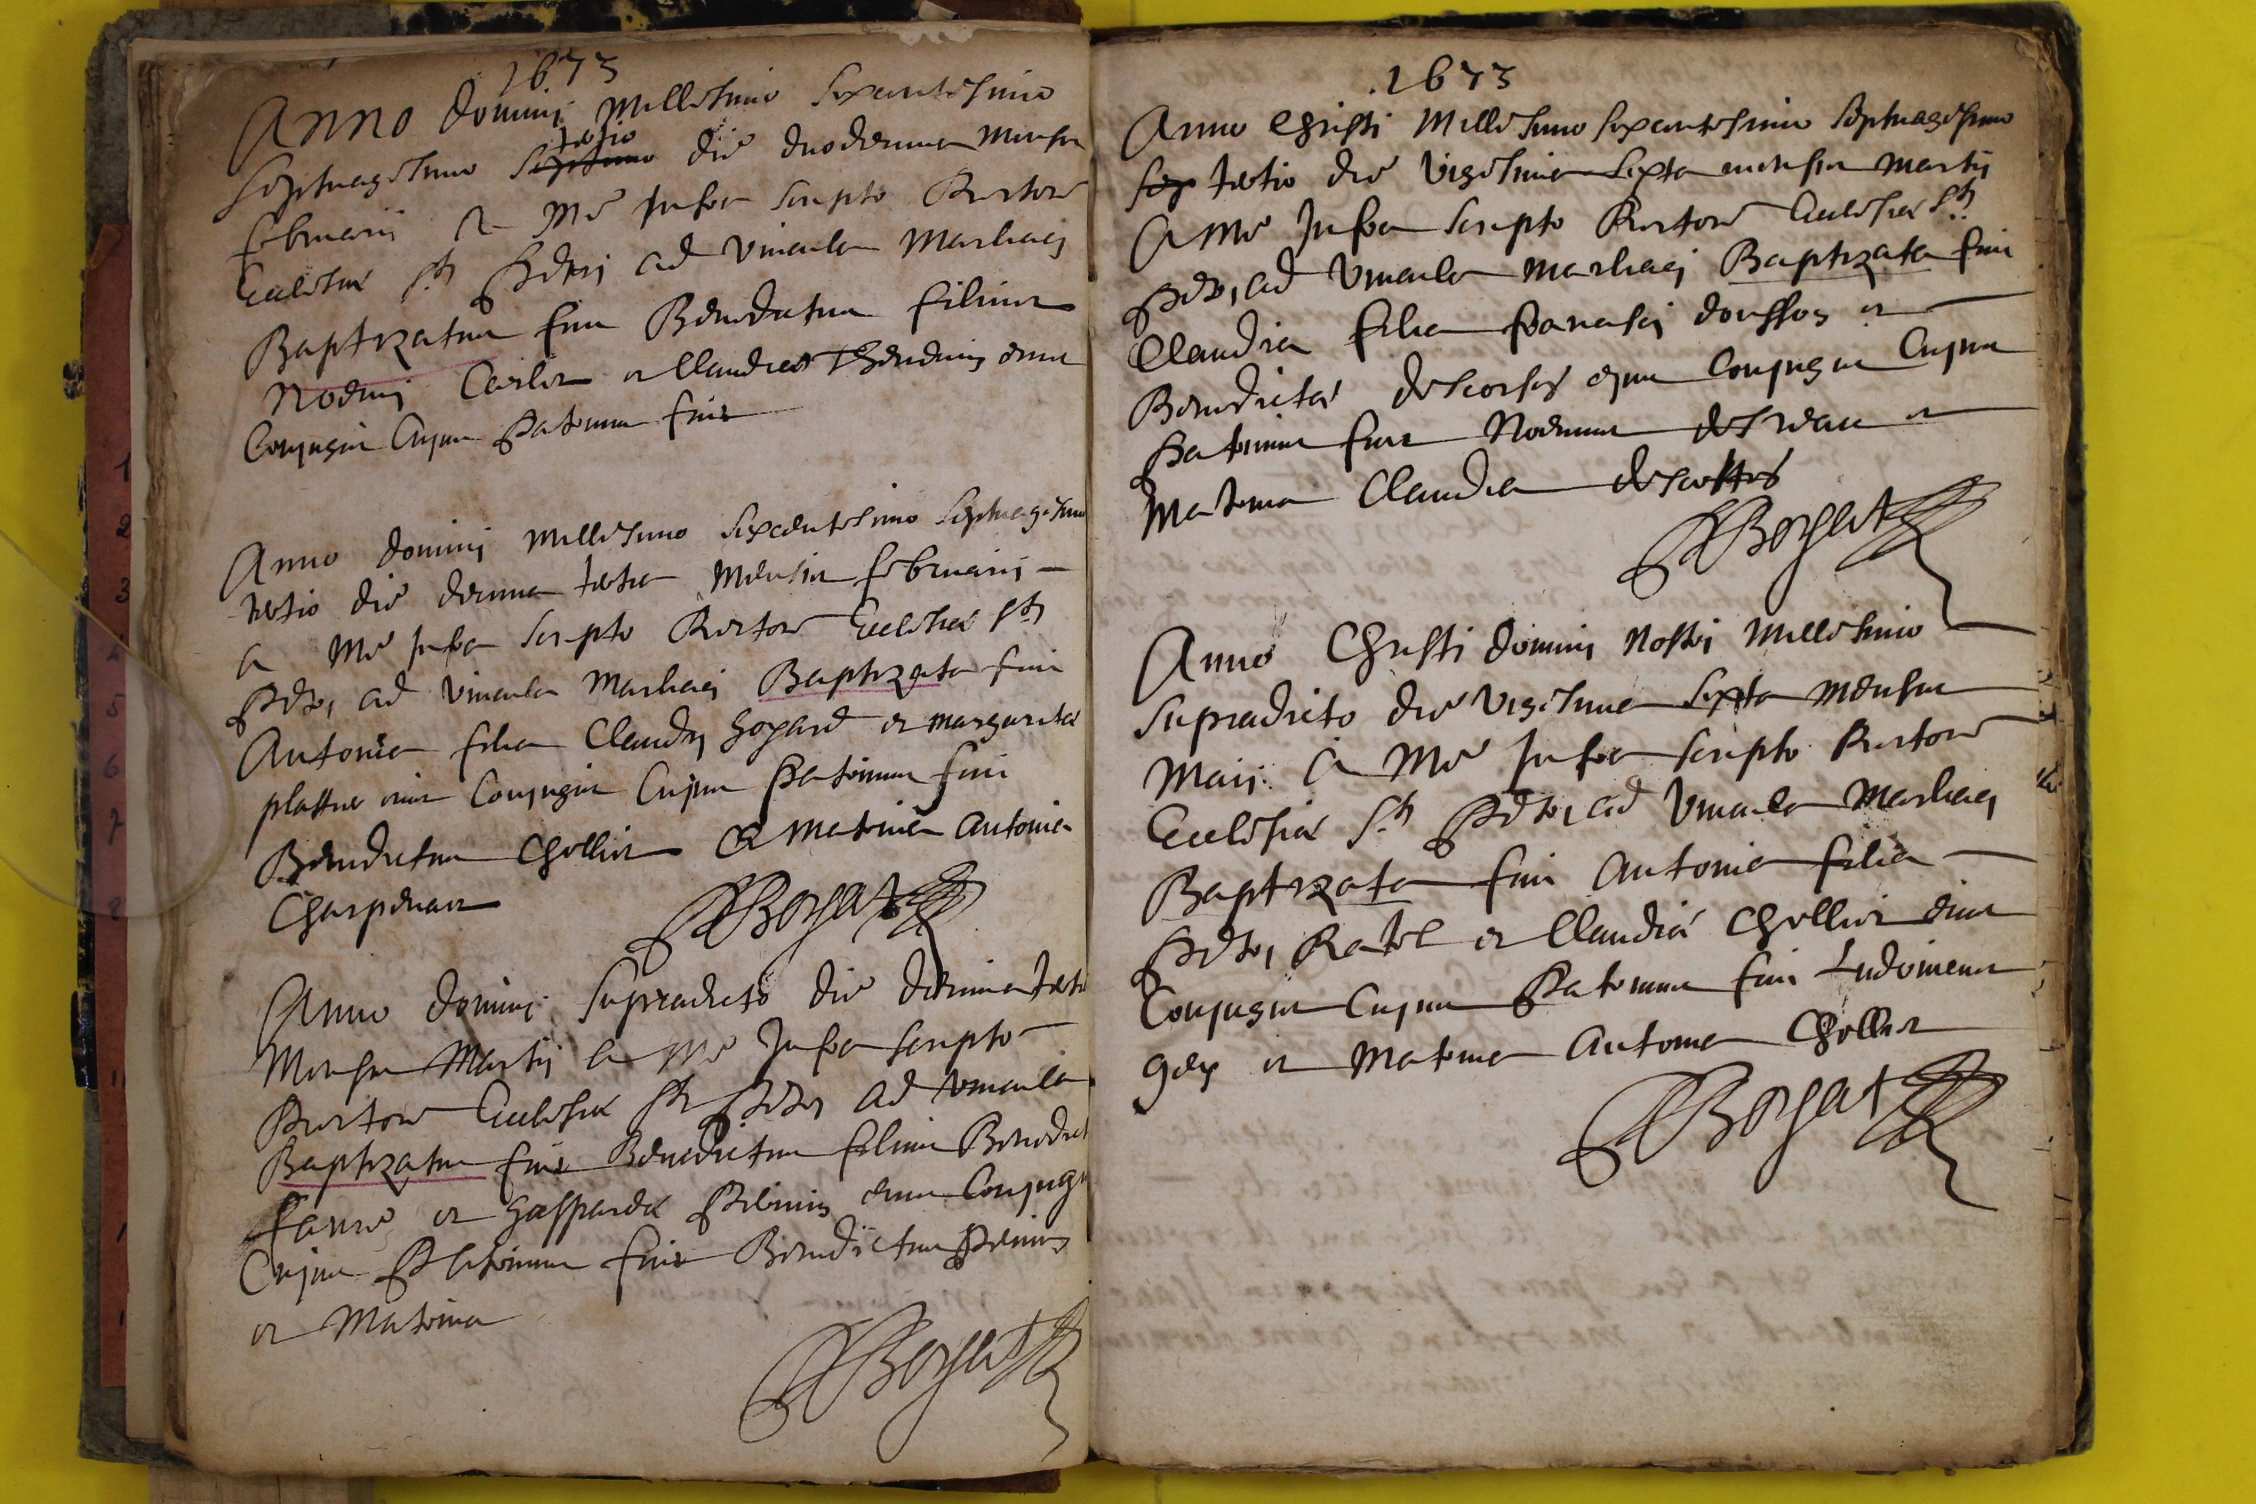 1673
Anno domini Millesimo sexcentesimo
septuagesimo septimo tertio die duodecima mensis
februarii a me Infra scripto Rectore
Ecclesiae sti petri ad vincula Marliaci
Baptizatus fuit Benedictus filius
Noemi et Claudiae eius
Conjugis Cujus Patrinus fuit
Anno domini millesimo sexcentesimo septuagesimo
tertio die decima tertia mensis februarii
a me Infra scripto Rectore Ecclesiae sti
petri ad vincula Marliaci Baptizata fuit
Antonia filia Claudii gogard et margaritae
plattre eius Conjugis Cujus patrinus fuit
Benedictus Chollier & matrina Antonia
Charpenay
Borgat
Anno domini supradicto die decima tertia
Mensis Martii a me Infra scripto
Rectore Ecclesiae sti petri ad vincula
Baptizatus fuit Benedictus filius Benedict
favre et gasparde eius Conjugis
Cujus Patrinus fuit Benedictus
et Matrina
Borgat
1673
Anno Christi Millesimo sexcentesimo septuagesimo
sep tertio die vigesima sexta mensis martii
A me Infra scripto Rectore Ecclesiae sti
petri ad vincula marliaci Baptizata fuit
Claudia filia francisci et
Benedictae descorses ejus Conjugis Cujus
Patrinus fuit et
Matrina Claudia descottes
Borgat
Anno Christi domini Nostri Millesimo
supradicto die vigesima sexta mensis
Maii a Me Infra scripto Rectore
Ecclesiae sti petri ad vincula Marliaci
Baptizata fuit Antonia filia
petri Ratel et Claudiae Chollier eius
Conjugis Cujus Patrinus fuit Ludovicus
gex et Matrina Antonia Chollier
Borgat